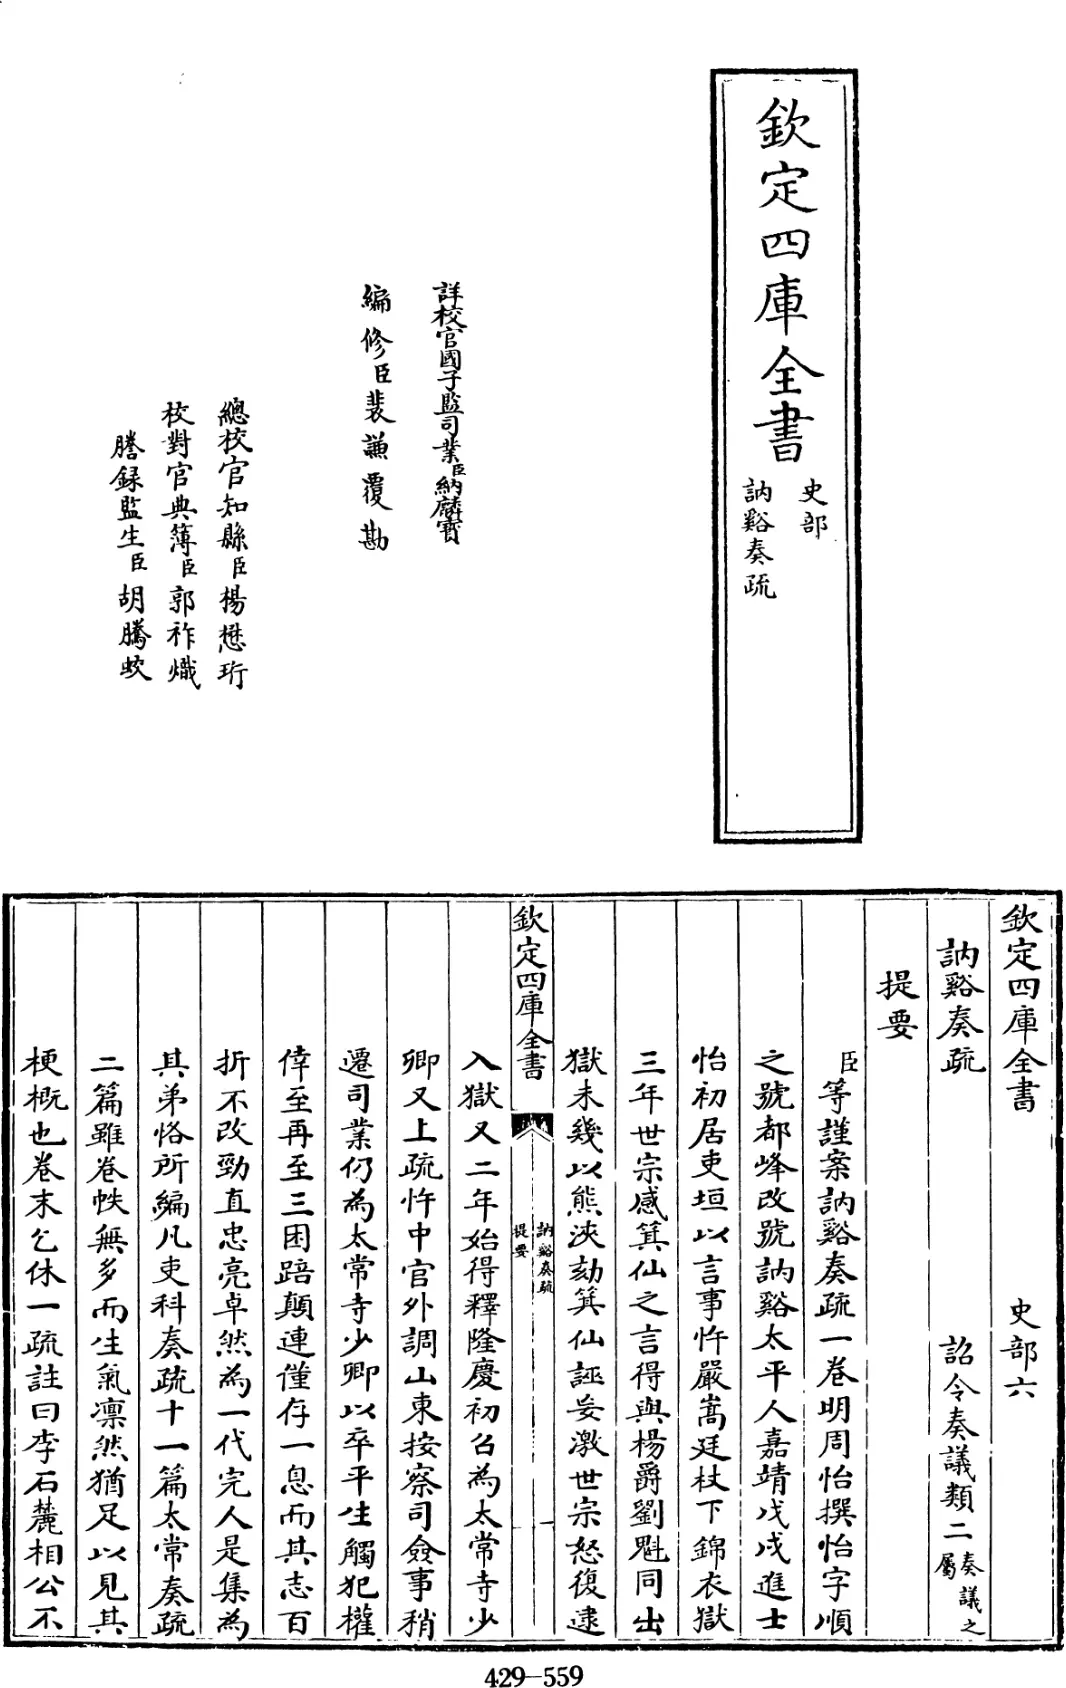 欽定四庫全書
史部
訥谿奏疏
詳校官國子監司業臣納麟寶
編修臣裴謙覆勘
總校官知縣臣楊懋珩
校對官典簿臣郭祚熾
謄録監生臣胡騰蛟
欽定四庫全書
史部六
訥谿奏疏
詔令奏議類二奏議之屬
提要
臣等謹案訥谿奏疏一卷明周怡撰怡字順
之號都峰改號訥谿太平人嘉靖戊戌進士
怡初居吏垣以言事忤嚴嵩廷杖下錦衣獄
三年世宗感箕仙之言得與楊爵劉魁同出
獄未幾以熊浹劾箕仙誣妄激世宗怒復逮
欽定四庫全書
訥谿奏疏
提要
一
入獄又二年始得釋隆慶初召為太常寺少
卿又上疏忤中官外調山東按察司僉事稍
遷司業仍為太常寺少卿以卒平生觸犯權
倖至再至三困踣顛連僅存一息而其志百
折不改勁直忠亮卓然為一代完人是集為
其弟恪所編凡吏科奏疏十一篇太常奏疏
二篇雖卷帙無多而生氣凛然猶足以見其
梗概也卷末乞休一疏註曰李石麓相公不
429-559